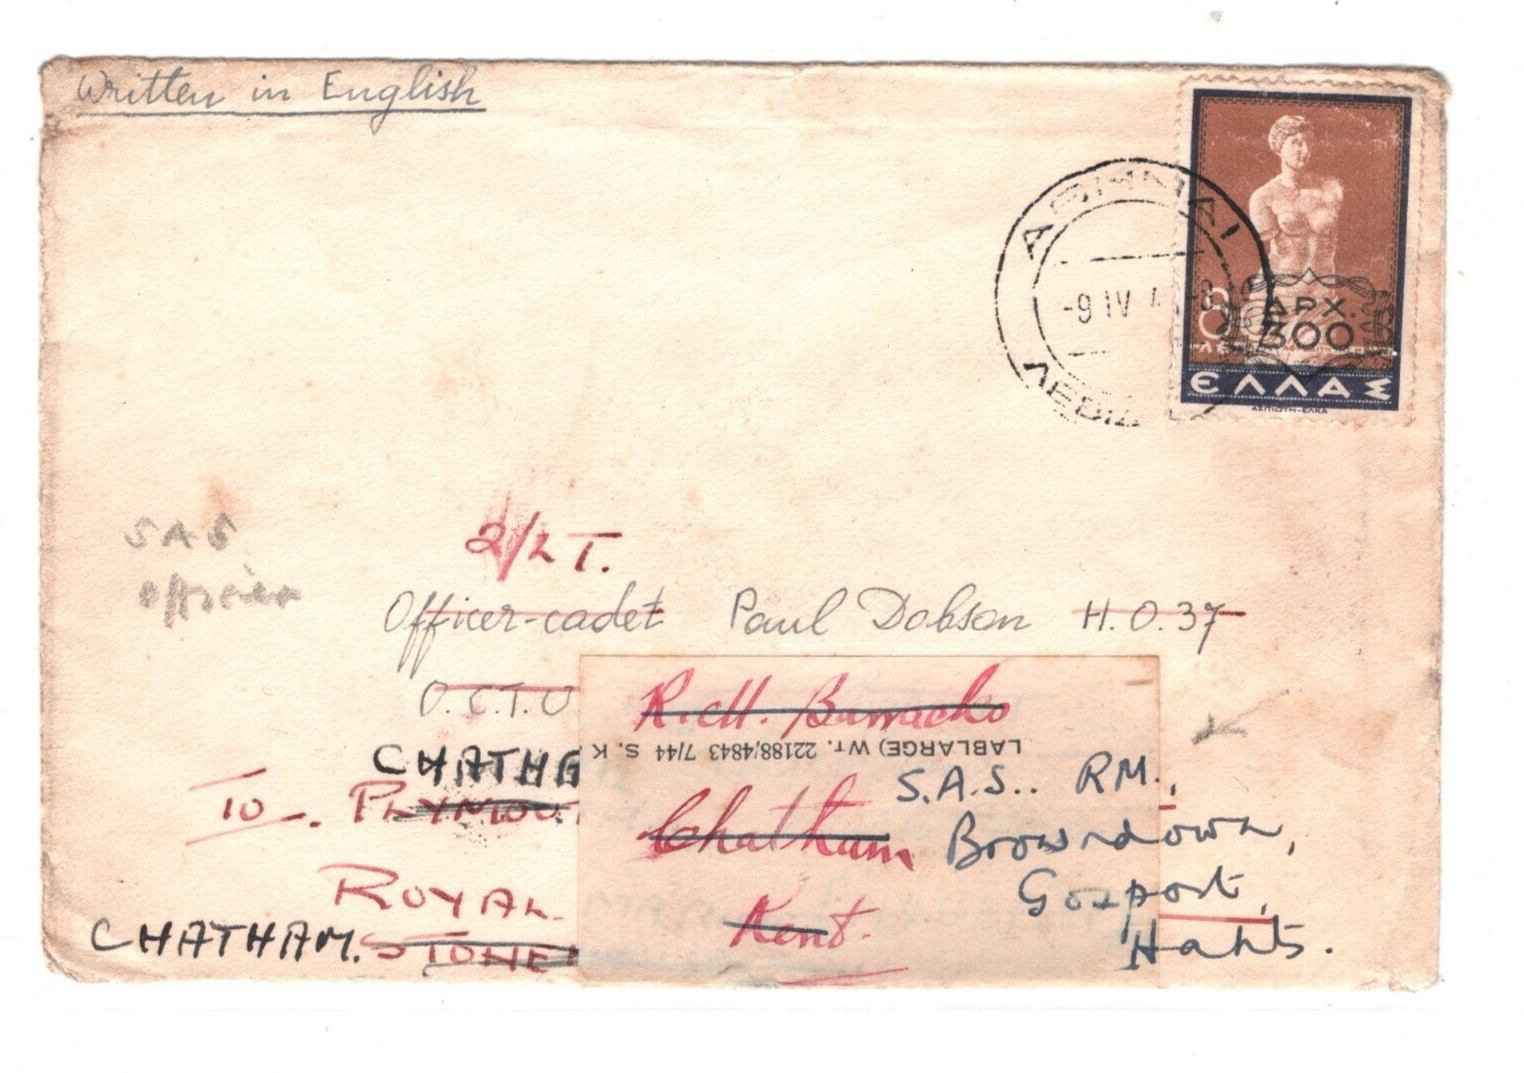 Written in English
ΑΘΗΝΑΙ
-9 IV
8
ΔΡΧ.
300
ΕΛΛΑΣ
ΑΣΠΙΩΤΗ-ΕΛΚΑ
SAS
officer
2/LT.
Officer-cadet Paul Dobson H.O.37
O.C.T.U
R.M. Barracks
LABLARGE) WT. 22188/4843 7/44 S. K
CHATHA
S.A.S.. RM.,
TO. PLYMOU
Chatham
Browndown,
ROYAL
Gosport,
CHATHAM. STONE
Kent.
Hants.